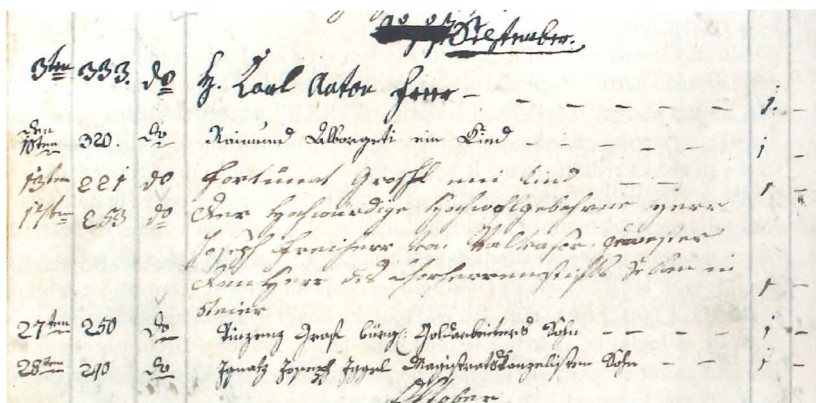 September.
3ten 333. do H. Carl Anton – – – – – – – – 1 –
den
10ten 320. do Raimund ein Kind – – – – – – 1 –
13ten 221 do Fortunat ein Kind 1 –
14ten 253 do Der Hochwürdige Hochwohlgebohrne Herr
Joseph Freiherr von gewester
DomHerr des Chorherrenstifts in
Steier 1 –
27ten 250 do Vinzenz Graf bürgl. Goldarbeiters Sohn – – – 1 –
28ten 290 do Ignatz Joseph Magistratskanzelisten Sohn – – 1 –
October